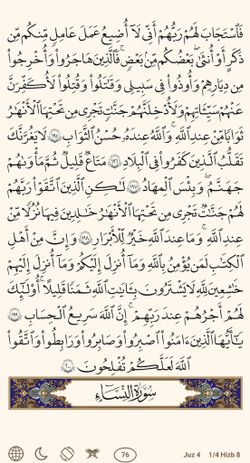 فَٱسْتَجَابَ لَهُمْ رَبُّهُمْ أَنِّى لَآ أُضِيعُ عَمَلَ عَـٰمِلٍ مِّنكُم مِّن
ذَكَرٍ أَوْ أُنثَىٰ ۖ بَعْضُكُم مِّنۢ بَعْضٍ ۖ فَٱلَّذِينَ هَاجَرُوا۟ وَأُخْرِجُوا۟
مِن دِيَـٰرِهِمْ وَأُوذُوا۟ فِى سَبِيلِى وَقَـٰتَلُوا۟ وَقُتِلُوا۟ لَأُكَفِّرَنَّ
عَنْهُمْ سَيِّـَٔاتِهِمْ وَلَأُدْخِلَنَّهُمْ جَنَّـٰتٍ تَجْرِى مِن تَحْتِهَا ٱلْأَنْهَـٰرُ
ثَوَابًا مِّنْ عِندِ ٱللَّهِ ۗ وَٱللَّهُ عِندَهُۥ حُسْنُ ٱلثَّوَابِ ١٩٥ لَا يَغُرَّنَّكَ
تَقَلُّبُ ٱلَّذِينَ كَفَرُوا۟ فِى ٱلْبِلَـٰدِ ١٩٦ مَتَـٰعٌ قَلِيلٌ ثُمَّ مَأْوَىٰهُمْ
جَهَنَّمُ ۚ وَبِئْسَ ٱلْمِهَادُ ١٩٧ لَـٰكِنِ ٱلَّذِينَ ٱتَّقَوْا۟ رَبَّهُمْ
لَهُمْ جَنَّـٰتٌ تَجْرِى مِن تَحْتِهَا ٱلْأَنْهَـٰرُ خَـٰلِدِينَ فِيهَا نُزُلًا مِّنْ
عِندِ ٱللَّهِ ۗ وَمَا عِندَ ٱللَّهِ خَيْرٌ لِّلْأَبْرَارِ ١٩٨ وَإِنَّ مِنْ أَهْلِ
ٱلْكِتَـٰبِ لَمَن يُؤْمِنُ بِٱللَّهِ وَمَآ أُنزِلَ إِلَيْكُمْ وَمَآ أُنزِلَ إِلَيْهِمْ
خَـٰشِعِينَ لِلَّهِ لَا يَشْتَرُونَ بِـَٔايَـٰتِ ٱللَّهِ ثَمَنًا قَلِيلًا ۗ أُو۟لَـٰٓئِكَ
لَهُمْ أَجْرُهُمْ عِندَ رَبِّهِمْ ۗ إِنَّ ٱللَّهَ سَرِيعُ ٱلْحِسَابِ ١٩٩
يَـٰٓأَيُّهَا ٱلَّذِينَ ءَامَنُوا۟ ٱصْبِرُوا۟ وَصَابِرُوا۟ وَرَابِطُوا۟ وَٱتَّقُوا۟
ٱللَّهَ لَعَلَّكُمْ تُفْلِحُونَ ٢٠٠
سُورَةُ النِّسَاءِ
76 Juz 4 1/4 Hizb 8